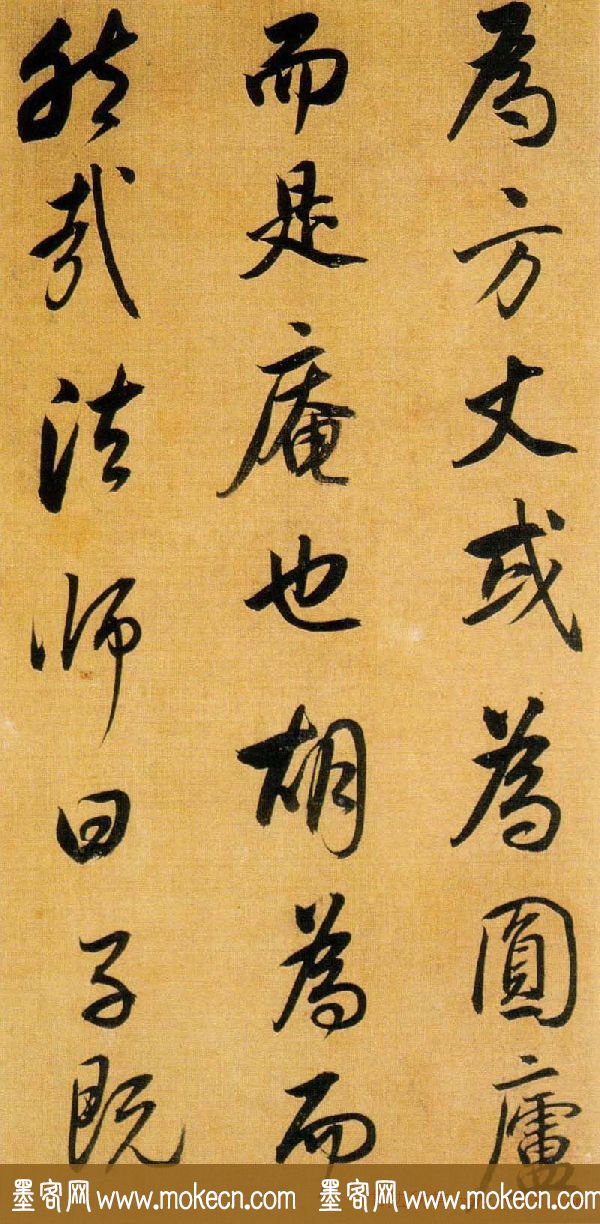 為方丈或為圓廬
而是庵也胡為而
然哉法师曰子既
墨客网 www.mokecn.com 墨客网 www.mokecn.com